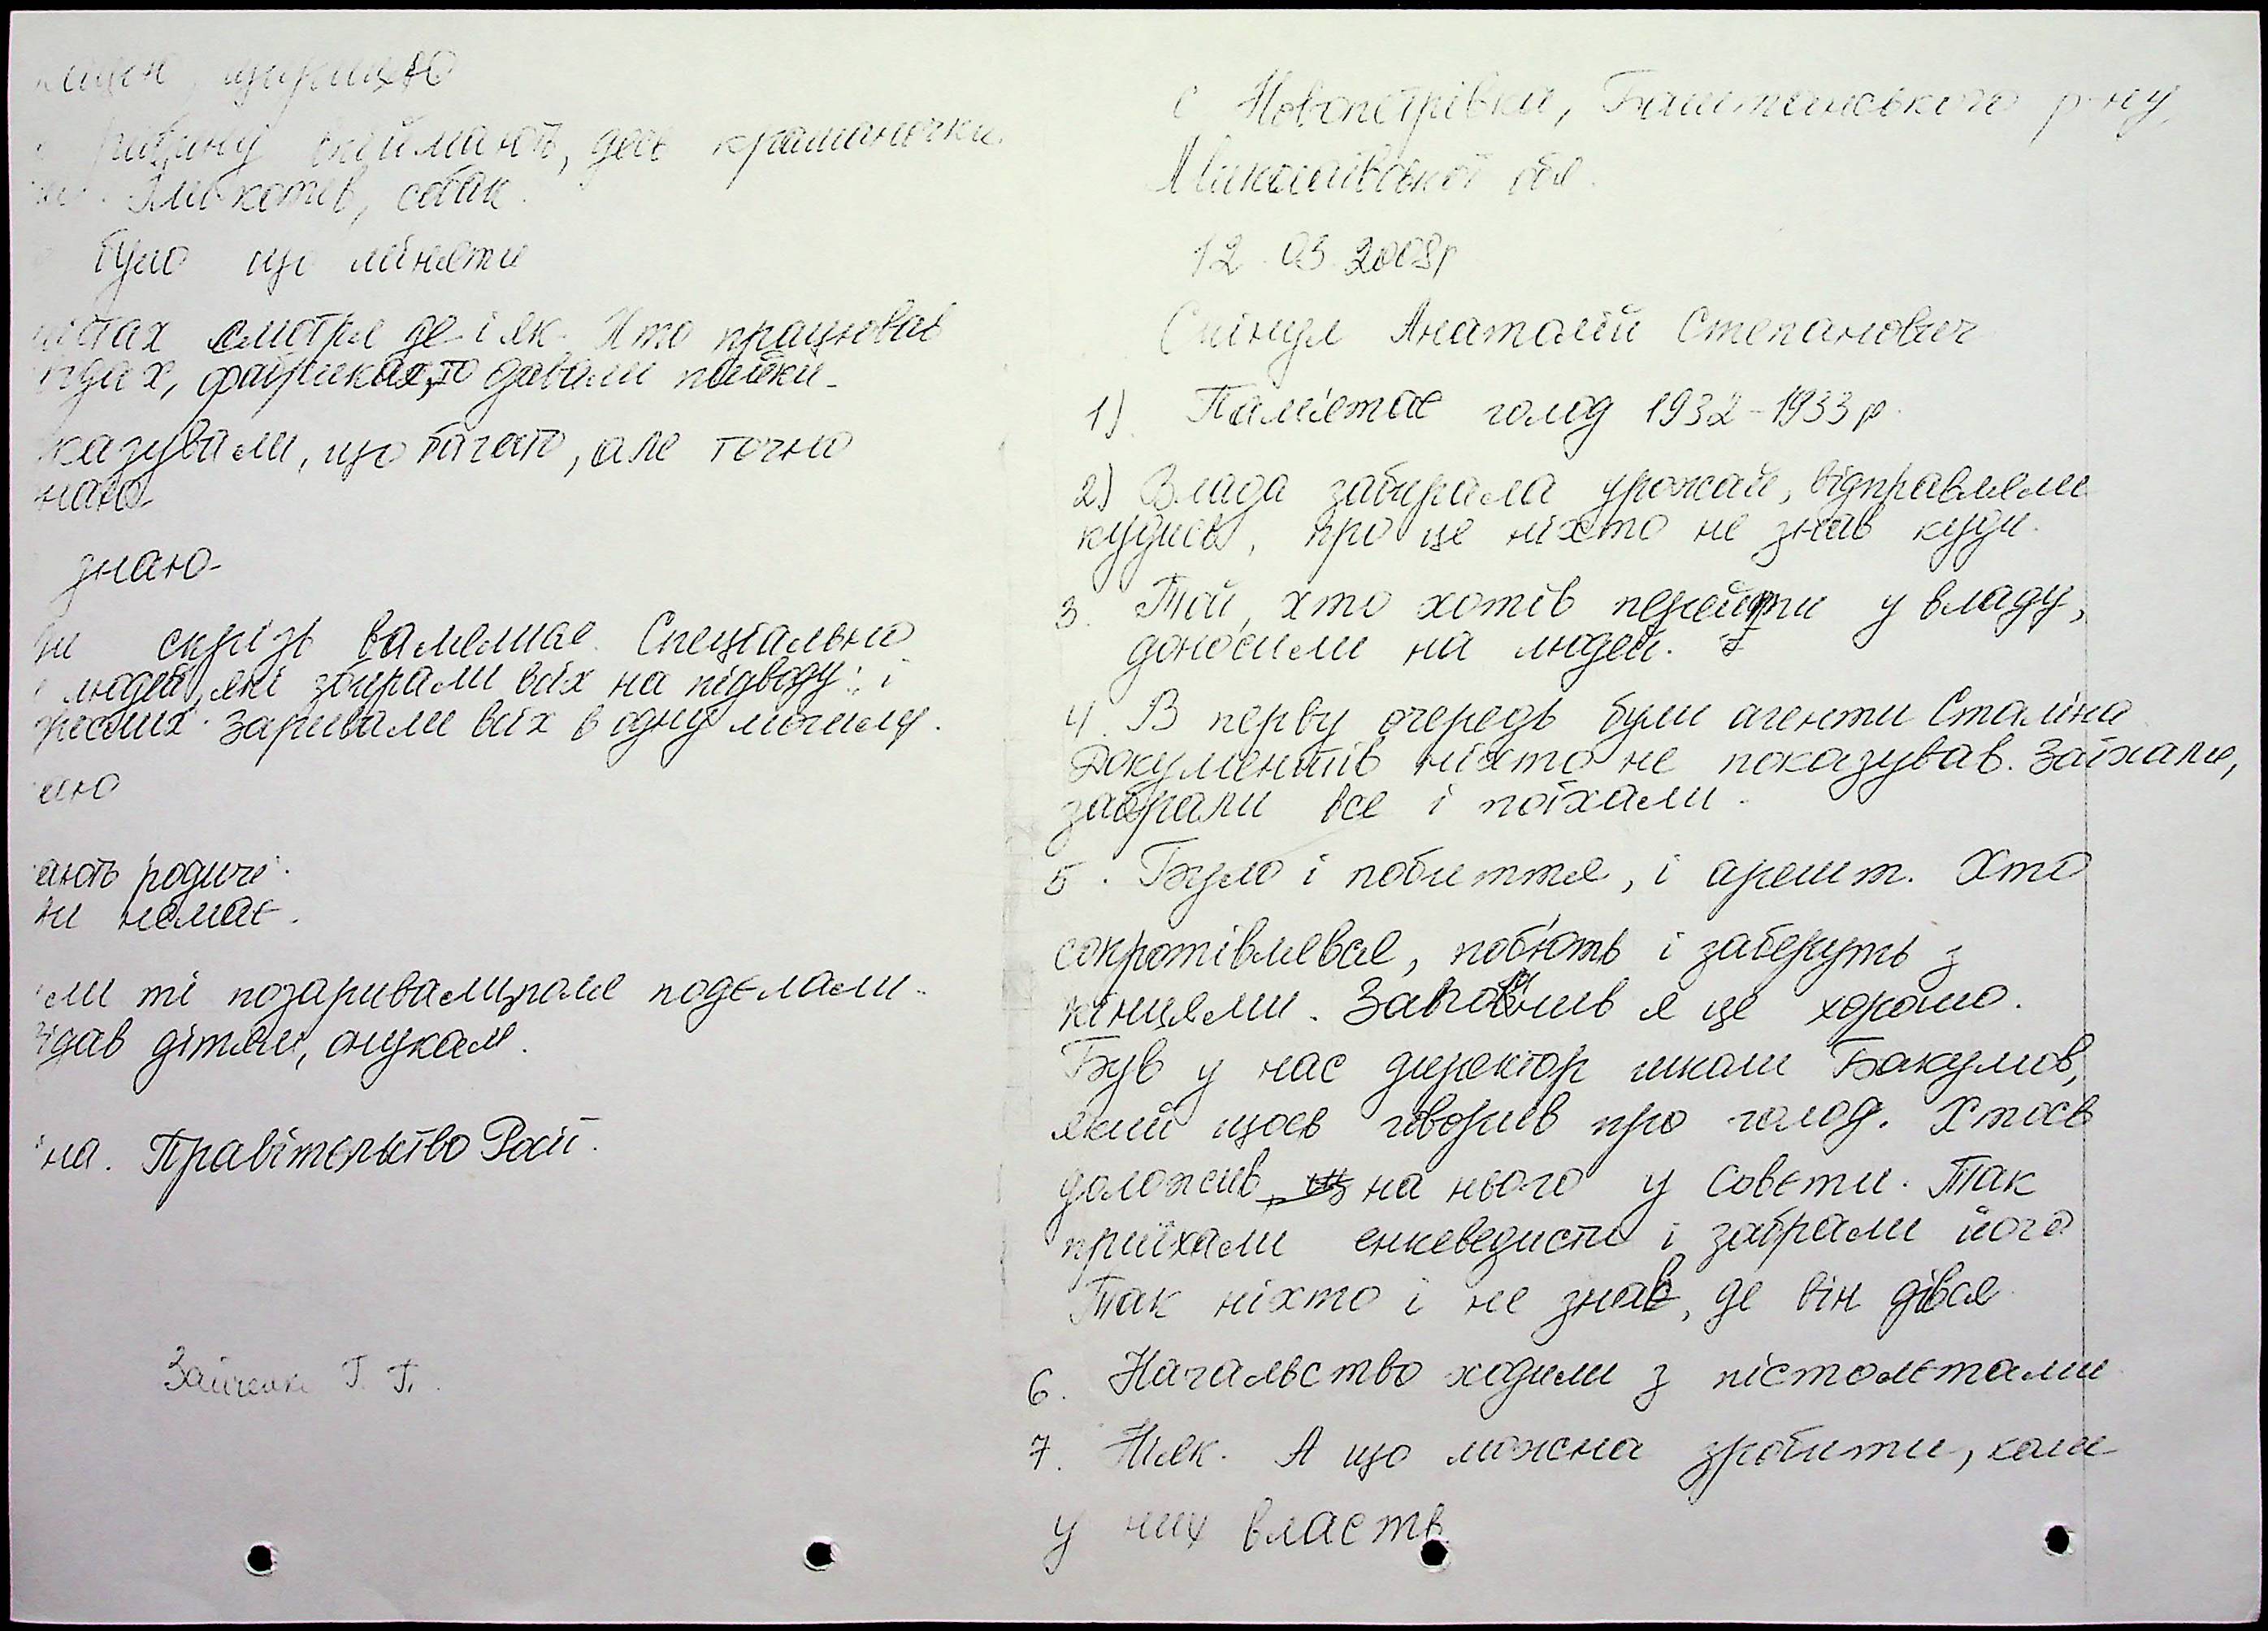 їймають, десь крашаночки.
Їли котів, собак.
було що міняти
містах смотря де і як. Хто працював
фабриках, то давали пайки.
казували, що багато, але точно
знаю.
знаю.
скрізь валялись. Спеціально
людей, які збирали всіх на підводу і
Заривали всіх в одну могилу.
родичі.
немає.
ті позаривали, поля поделали.
дав дітям, онукам.
на. Правітельство Росії.
Зайченко Г. Г.
с Новопетрівка, Баштанського р-ну,
Миколаївської обл.
12.03.2008р
Анатолій Степанович
1) Памʼятає голод 1932-1933 р.
2) Влада забирала урожай, відправляли
кудись, про це ніхто не знав куди.
3. Той, хто хотів перейти у владу,
доносили на людей.
4. В перву очередь були агенти Сталіна
Документів ніхто не показував. Заїхали,
забрали все і поїхали.
5. Було і побиття, і арешт. Хто
сопротівлявся, побʼють і заберуть з
кінцями. Запомнив я це хорошо.
Був у нас директор школи Бакумов,
який щось говорив про голод. Хтось
доложив на нього у Совєти. Так
приїхали енкеведисти і забрали його
Так ніхто і не знав, де він дівся
6. Начальство ходили з пістолєтами
7. Ніяк. А що можна зробити, коли
у них власть.